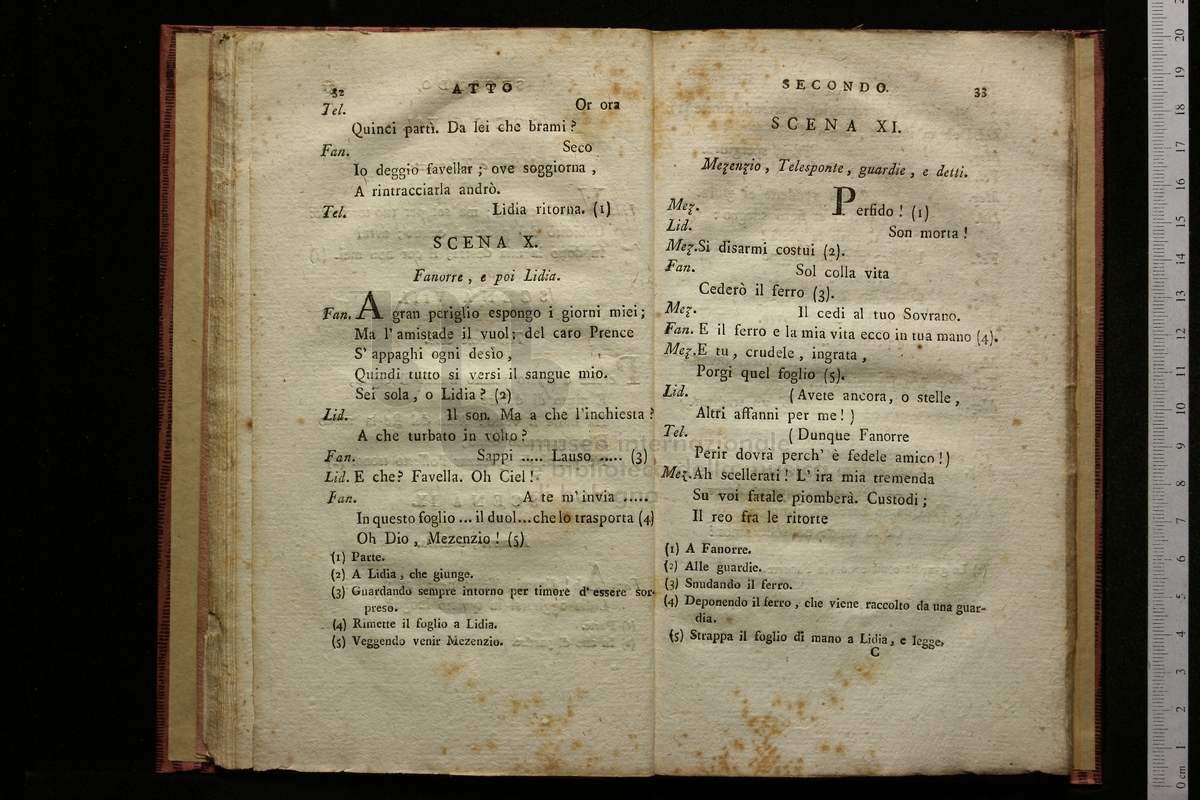 32 ATTO
Tel. Or ora
Quinci partì. Da lei che brami?
Fan. Seco
Io deggio favellar; ove soggiorna,
A rintracciarla andrò.
Tel. Lidia ritorna. (1)
SCENA X.
Fanorre, e poi Lidia.
Fan. A gran periglio espongo i giorni miei;
Ma l'amistade il vuol; del caro Prence
S'appaghi ogni desìo,
Quindi tutto si versi il sangue mio.
Sei sola, o Lidia? (2)
Lid. Il son. Ma a che l'inchiesta?
A che turbato in volto?
Fan. Sappi ..... Lauso ..... (3)
Lid. E che? Favella. Oh Ciel!
Fan. A te m'invia .....
In questo foglio ... il duol... che lo trasporta (4)
Oh Dio, Mezenzio! (5)
(1) Parte.
(2) A Lidia, che giunge.
(3) Guardando sempre intorno per timore d'essere sor-
preso.
(4) Rimette il foglio a Lidia.
(5) Veggendo venir Mezenzio.
SECONDO. 33
SCENA XI.
Mezenzio, Telesponte, guardie, e detti.
Mez. Perfido! (1)
Lid. Son morta!
Mez. Si disarmi costui (2).
Fan. Sol colla vita
Cederò il ferro (3).
Mez. Il cedi al tuo Sovrano.
Fan. E il ferro e la mia vita ecco in tua mano (4).
Mez. E tu, crudele, ingrata,
Porgi quel foglio (5).
Lid. (Avete ancora, o stelle,
Altri affanni per me!)
Tel. (Dunque Fanorre
Perir dovrà perch'è fedele amico!)
Mez. Ah scellerati! L'ira mia tremenda
Su voi fatale piomberà. Custodi;
Il reo fra le ritorte
(1) A Fanorre.
(2) Alle guardie.
(3) Snudando il ferro.
(4) Deponendo il ferro, che viene raccolto da una guar-
dia.
(5) Strappa il foglio di mano a Lidia, e legge.
C
museo internazionale
e biblioteca della musica